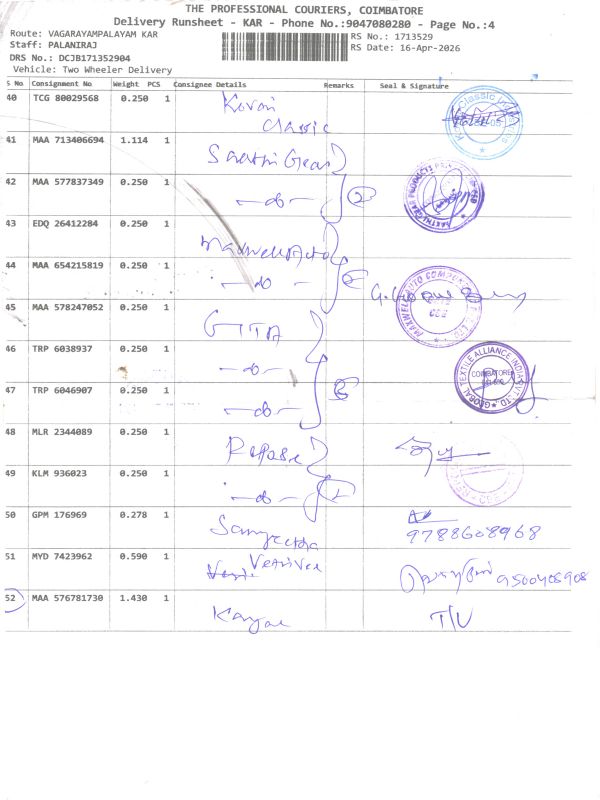 THE PROFESSIONAL COURIERS, COIMBATORE
Delivery Runsheet - KAR - Phone No.:9047080280 - Page No.:4
Route: VAGARAYAMPALAYAM KAR
RS No.: 1713529
Staff: PALANIRAJ
RS Date: 16-Apr-2026
DRS No.: DCJB171352904
Vehicle: Two Wheeler Delivery
S No Consignment No Weight PCS Consignee Details Remarks Seal & Signature
40 TCG 80029568 0.250 1 Kovai Classic
41 MAA 713406694 1.114 1
42 MAA 577837349 0.250 1 -do- 2
43 EDQ 26412284 0.250 1
44 MAA 654215819 0.250 1 -do-
45 MAA 578247052 0.250 1 GTTA
46 TRP 6038937 0.250 1 -do-
47 TRP 6046907 0.250 1 -do-
GLOBAL TEXTILE ALLIANCE INDIA PVT. LTD.
COIMBATORE
48 MLR 2344089 0.250 1
49 KLM 936023 0.250 1 -do-
50 GPM 176969 0.278 1 Sangeetha 9788608968
51 MYD 7423962 0.590 1 Vetrivel 9500408908
52 MAA 576781730 1.430 1